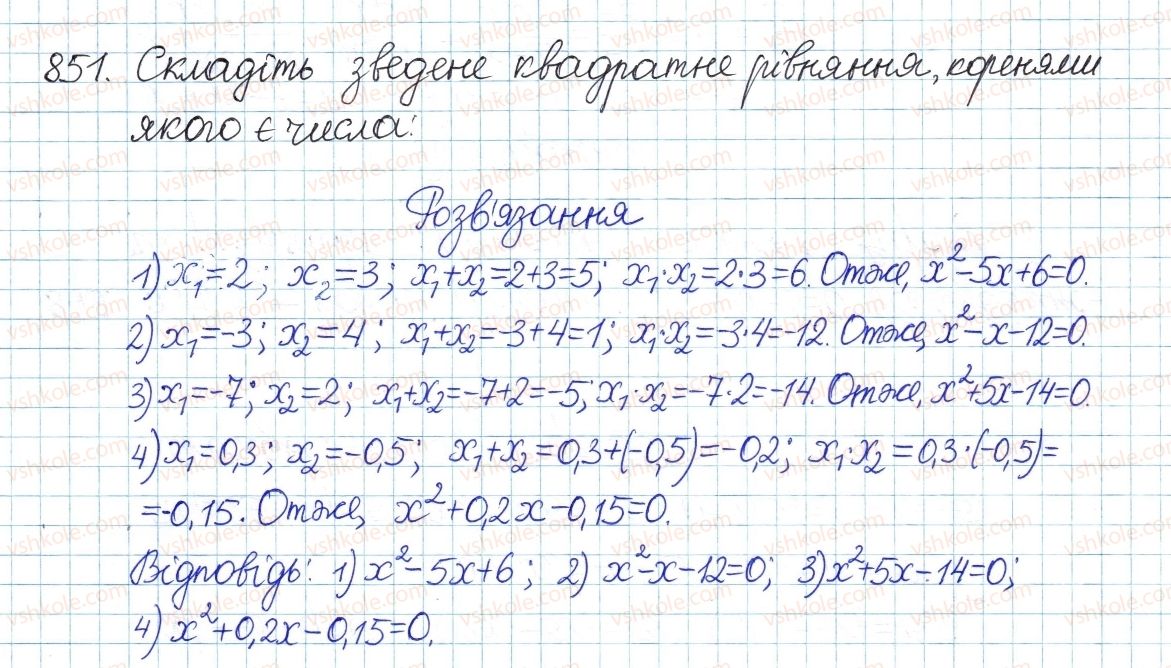 851. Складіть зведене квадратне рівняння, коренями
якого є числа:
Розв'язання
1) x₁=2; x₂=3; x₁+x₂=2+3=5; x₁·x₂=2·3=6. Отже, x²-5x+6=0.
2) x₁=-3; x₂=4; x₁+x₂=-3+4=1; x₁·x₂=-3·4=-12. Отже, x²-x-12=0.
3) x₁=-7; x₂=2; x₁+x₂=-7+2=-5; x₁·x₂=-7·2=-14. Отже, x²+5x-14=0.
4) x₁=0,3; x₂=-0,5; x₁+x₂=0,3+(-0,5)=-0,2; x₁·x₂=0,3·(-0,5)=
=-0,15. Отже, x²+0,2x-0,15=0.
Відповідь: 1) x²-5x+6; 2) x²-x-12=0; 3) x²+5x-14=0;
4) x²+0,2x-0,15=0.